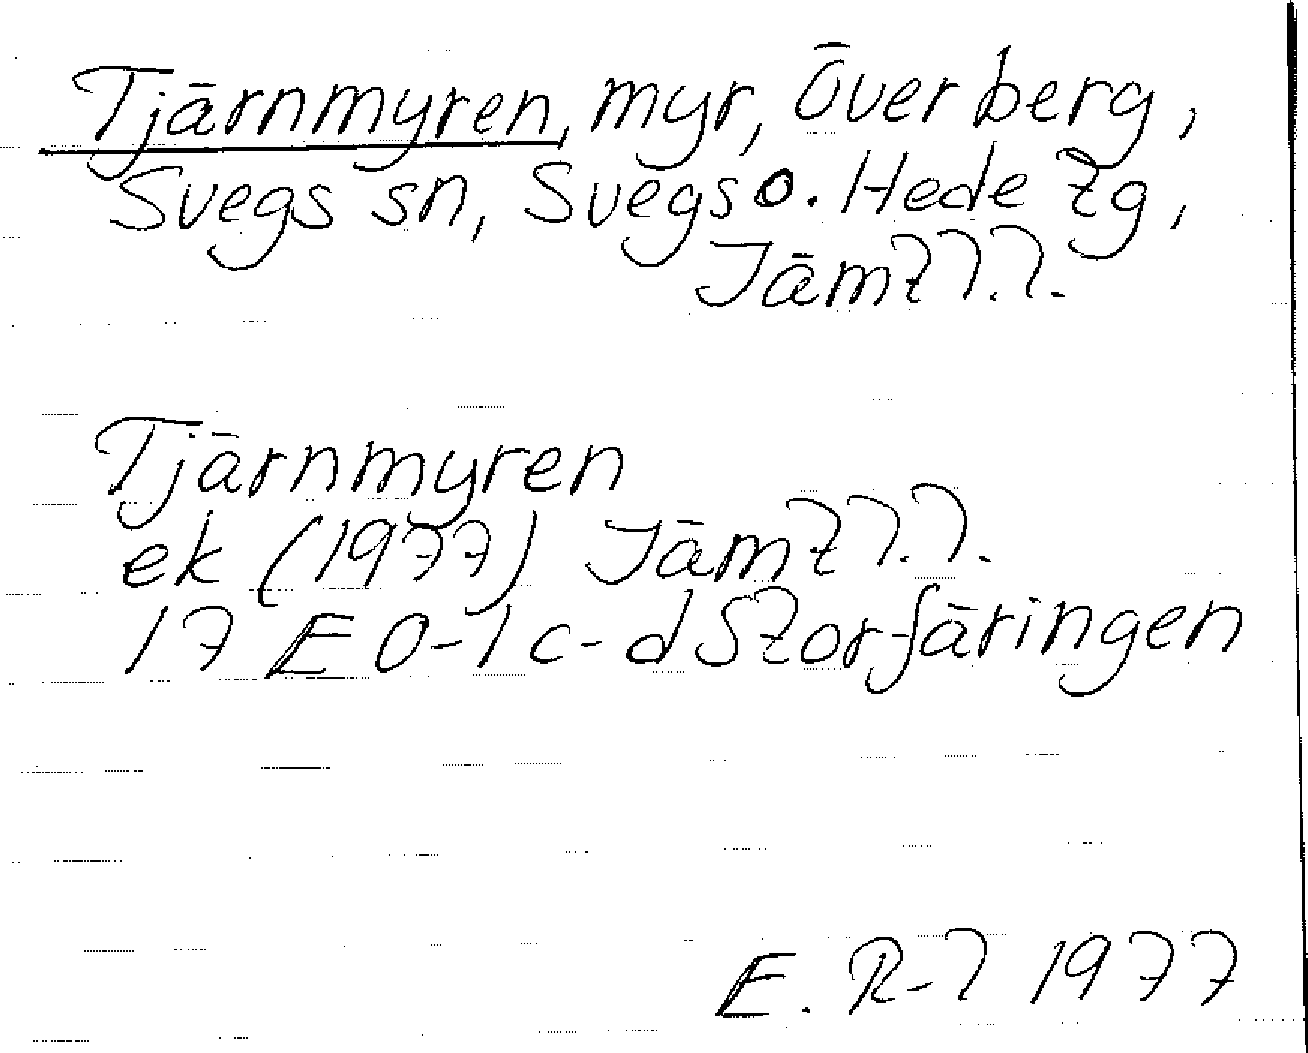 Tjärnmyren, myr, Överberg,
Svegs sn, Svegs o. Hede tg,
Jämtl.l.
Tjärnmyren
ek (1977) Jämtl.l.
17 E 0-1 c-d Storfäringen
E. R-l 1977